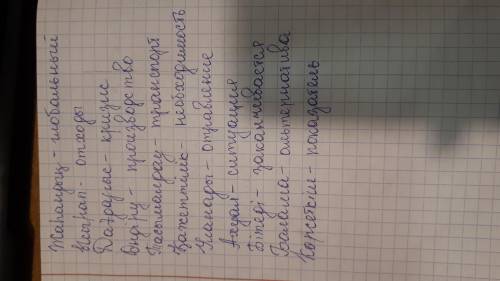 Жаһандық – глобальный
Қалдық – отходы
Дағдарыс – кризис
Өндіру – производство
Тасымалдау – транспорт
Қажеттілік – необходимость
Уланады – отравление
Ахуал – ситуация
Бітеді – заканчивается
Балама – альтернатива
Көрсеткіш – показатель